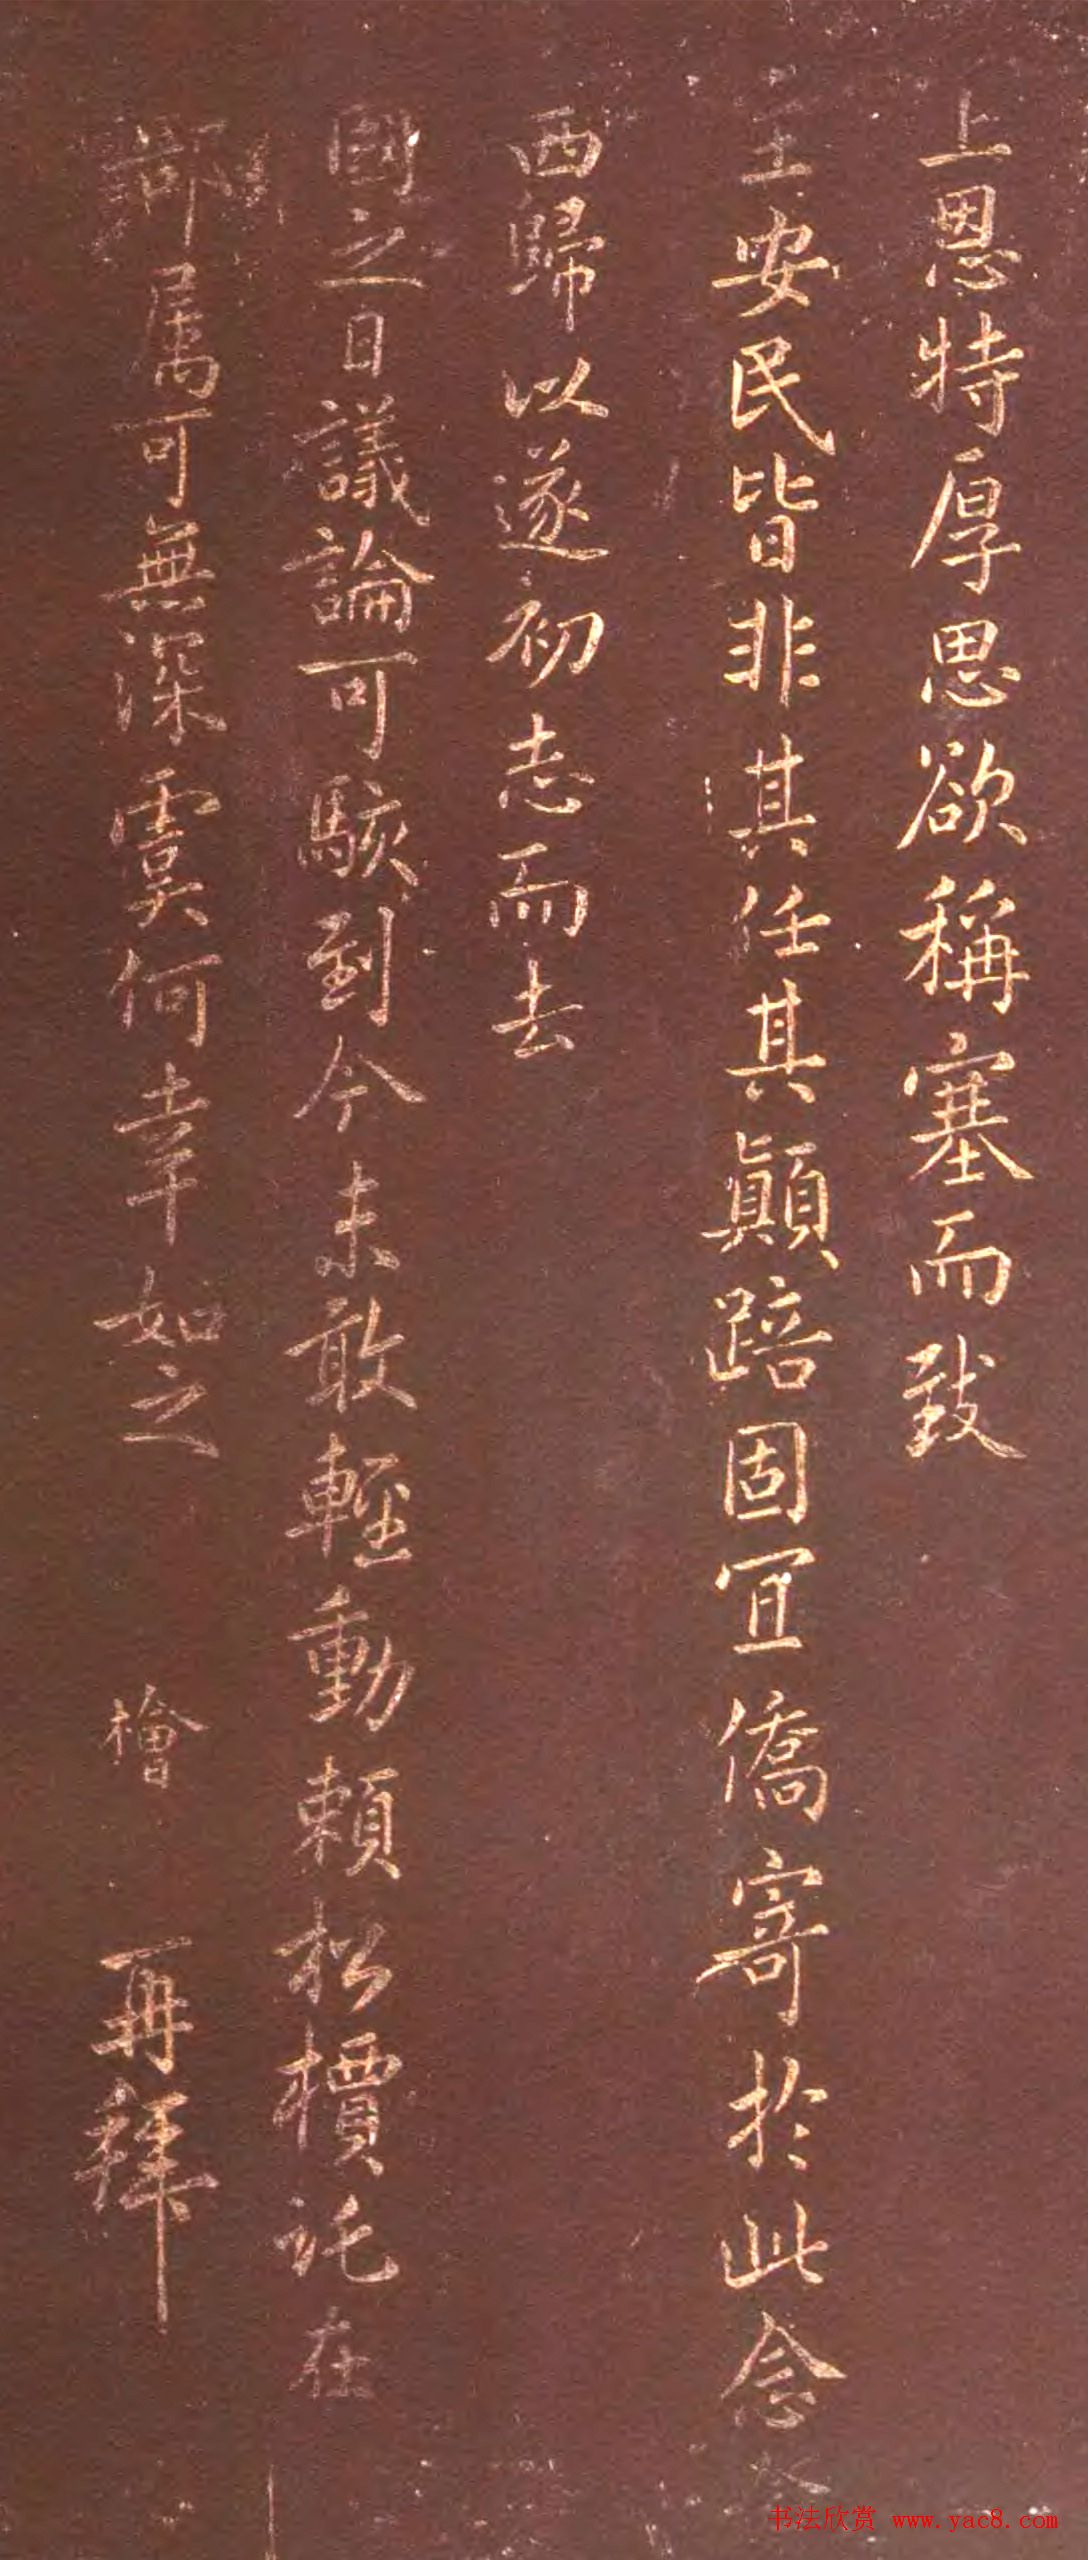 上恩特厚思欲稱塞而致
主安民皆非其任其顛踣固宜僑寄於此念
西歸以遂初志而去
國之日議論可駭到今未敢輕動賴松檟託在
部属可無深虞何幸如之 檜 再拜
书法欣赏 www.yac8.com